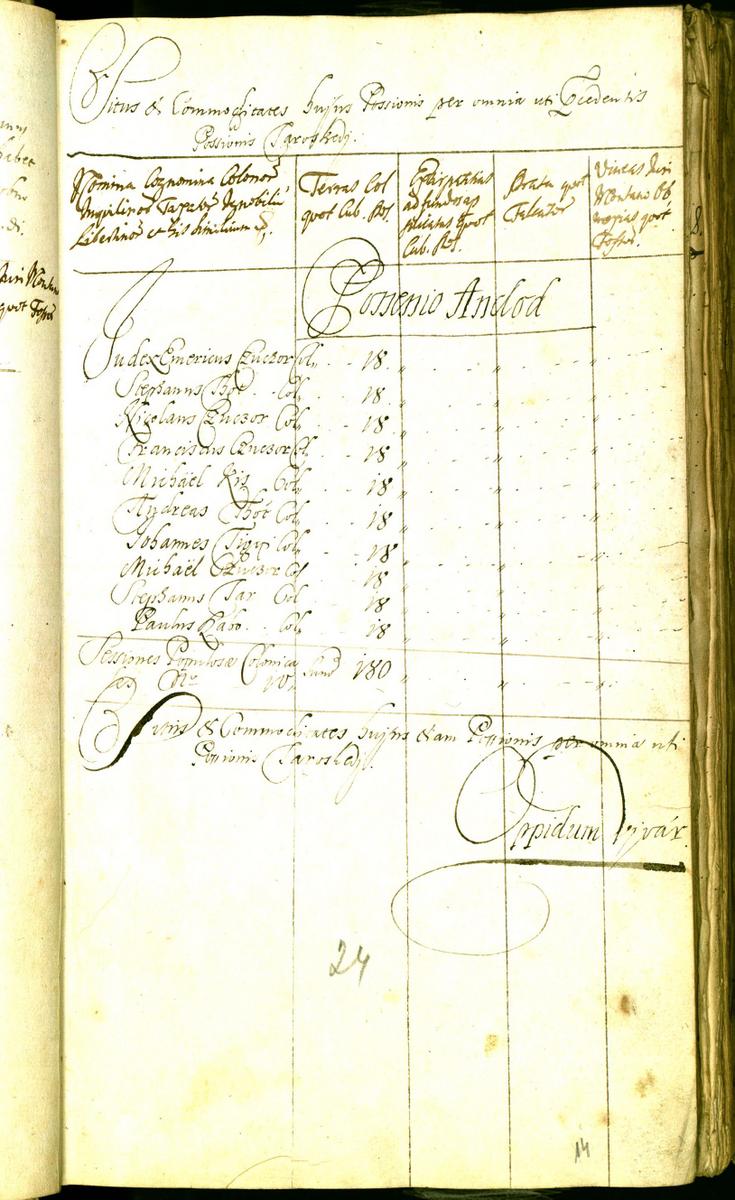 Situs & Commoditates hujus Possionis per omnia uti Præcedentis
Possionis Taroskedj.
Nomina Cognomina Colonor
Inquilinor Taxator Ignobiliū
Libertinor et his similium
Terras Col
quot Cub. Pos.
ad fundos ap
plicatas quot
Cub. Pos.
Prata quot
Falcator
Vineas Juri
Montano Ob
noxias quot
Fossor
Possessio Andod
Judex Emericus Czuczor Col. 18
Stephanus Thot Col. 18
Nicolaus Czuczor Col. 18
Franciscus Czuczor Col. 18
Michaël Kis Col. 18
Andreas Thot Col. 18
Johannes Col. 18
Michaël Czuczor Col 18
Stephanus Tar Col 18
Paulus Szabo Col. 18
Sessiones Populosæ Colonicæ
Nro 10. 180
Situs & Commoditates hujus etiam Possionis per omnia uti
Possionis Taroskedj.
Oppidum Ujvár.
24
14